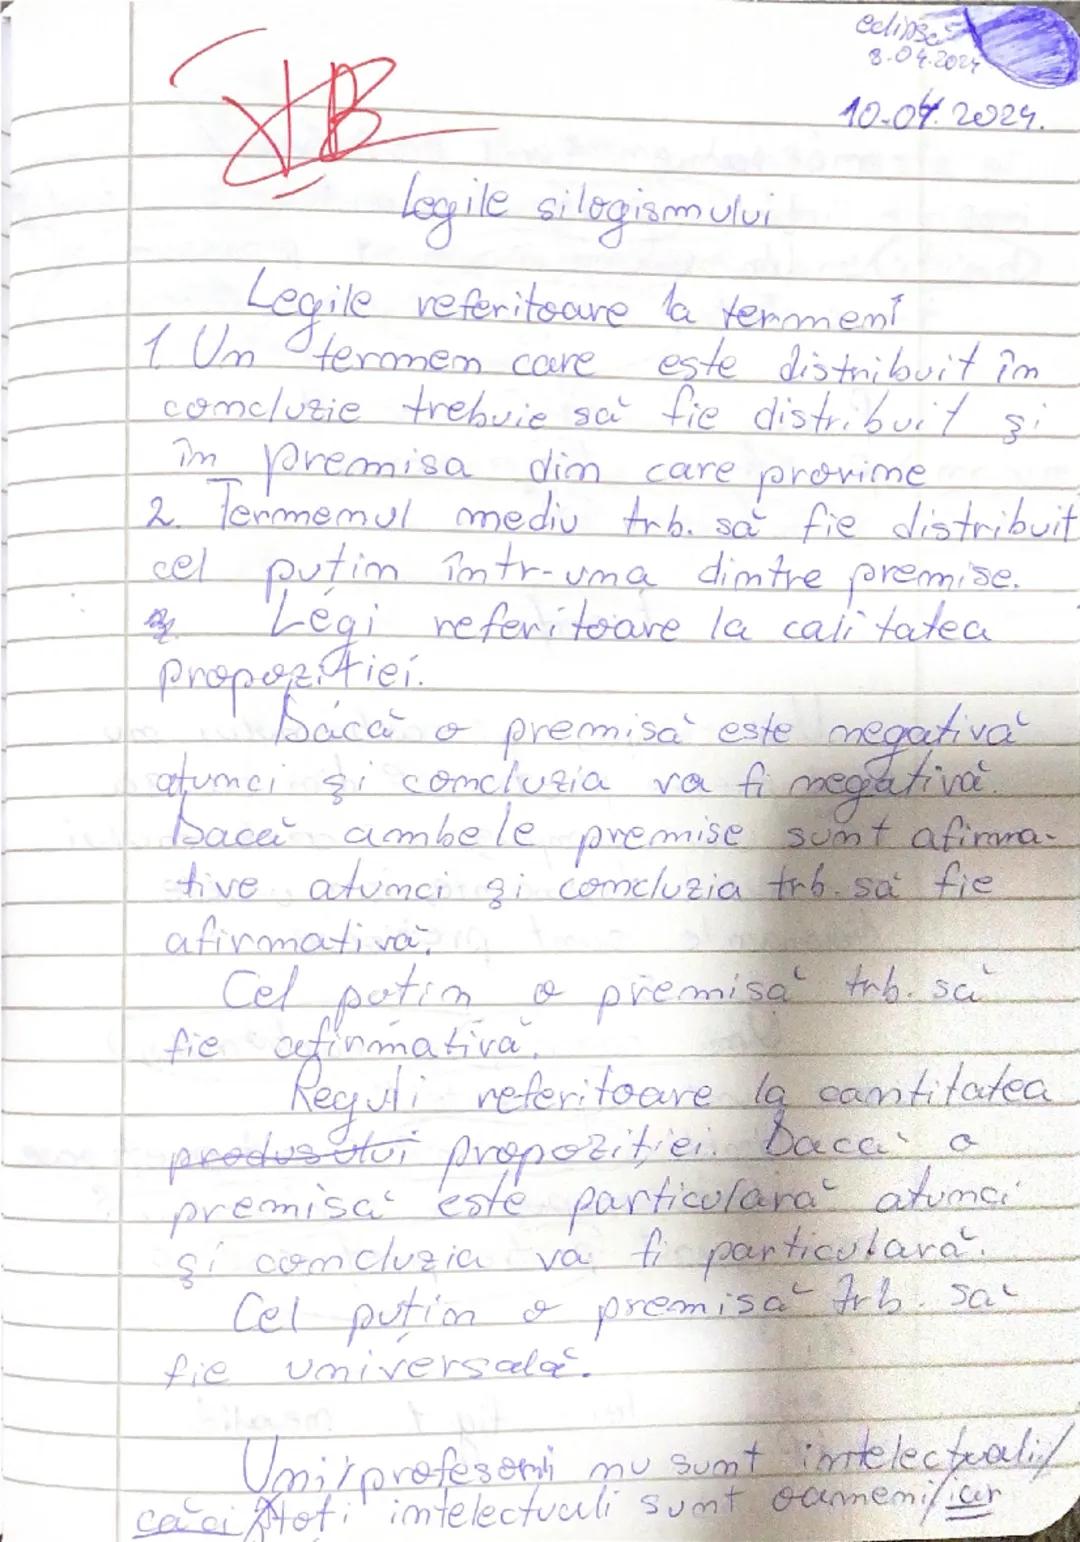 eclipsă
8.04.2024
10.04.2024.
Legile silogismului
Legile referitoare la termeni
1. Un termen care este distribuit în
concluzie trebuie să fie distribuit și
în premisa din care provine
2. Termenul mediu trb. să fie distribuit
cel puțin într-una dintre premise.
Legi referitoare la calitatea
propoziției.
Dacă o premisă este negativă
atunci și concluzia va fi negativă.
Dacă ambele premise sunt afirma-
tive atunci și concluzia trb. să fie
afirmativă.
Cel puțin o premisă trb. să
fie afirmativă.
Reguli referitoare la cantitatea
produsului propoziției. Dacă o
premisă este particulară atunci
și concluzia va fi particulară.
Cel puțin o premisă trb. să
fie universală.
Unii profesori nu sunt intelectuali/
căci toți intelectuali sunt oameni/iar